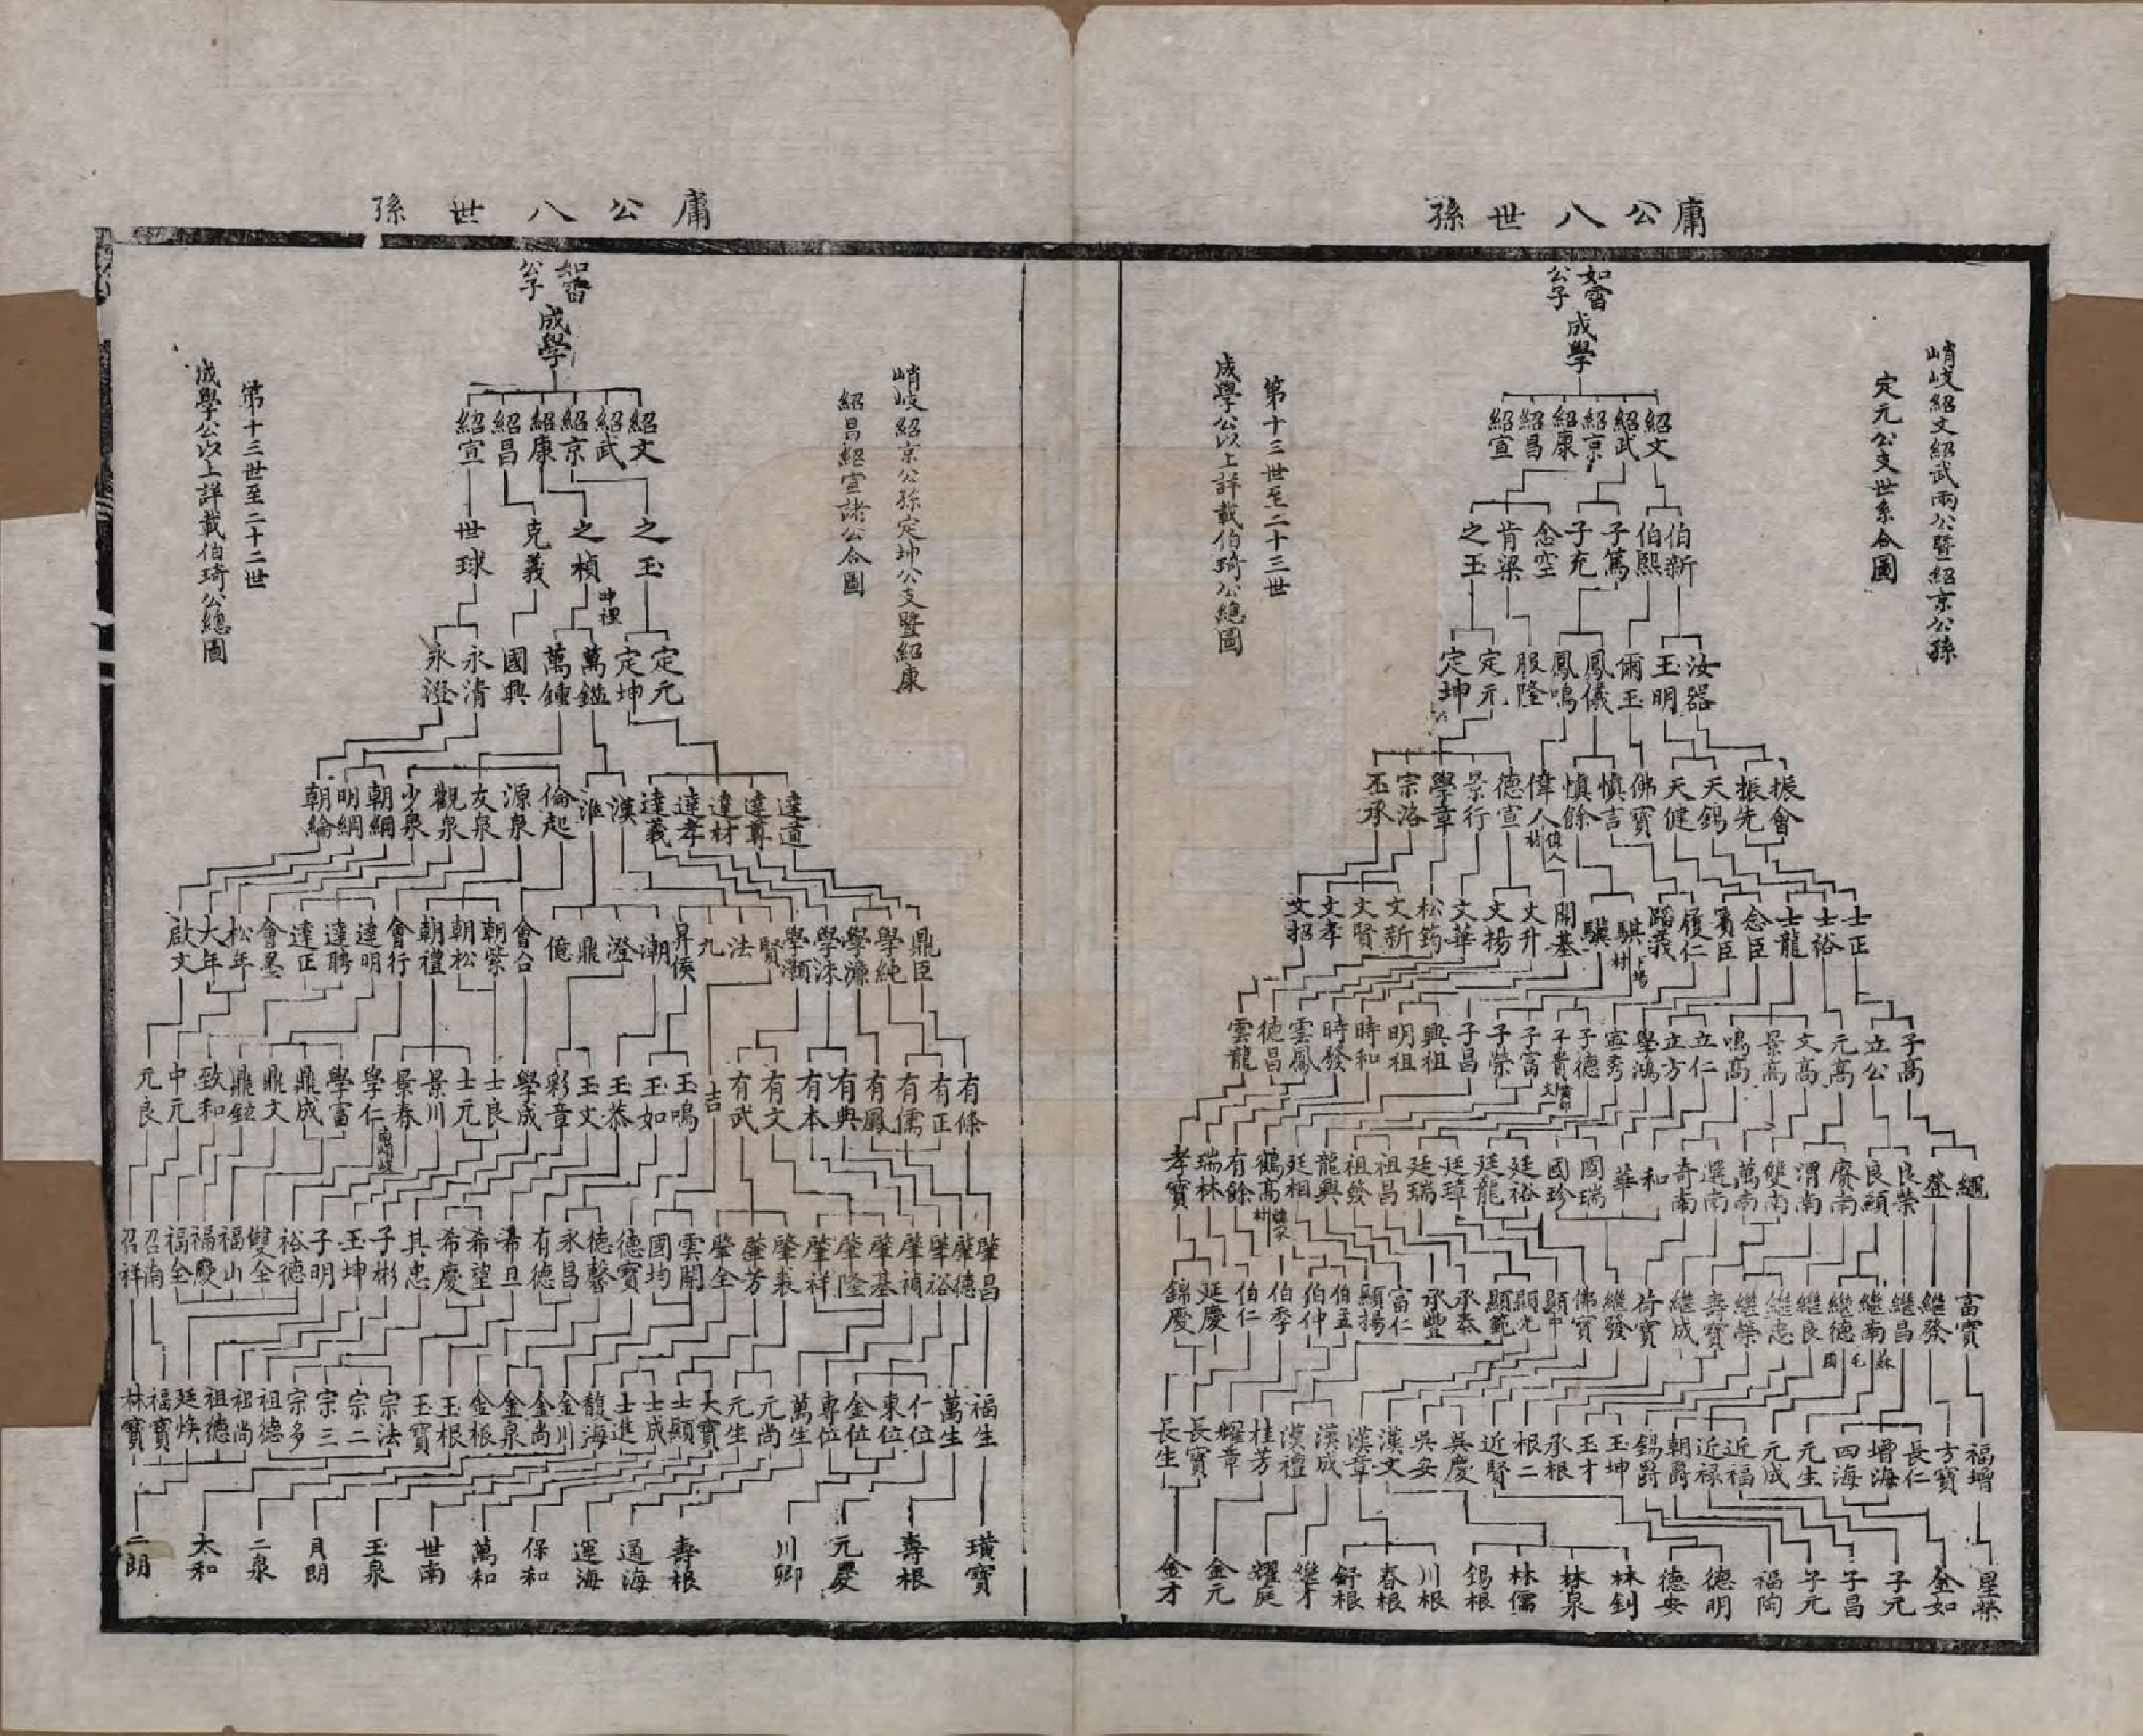 庸公八世孫
峭岐紹文紹武兩公暨紹京公孫
定元公支世系合圖
如雷公子
成學
第十三世至二十三世
成學公以上詳載伯琦公總圖
紹文 紹武 紹京 紹康 紹昌 紹宣
伯新 伯熙 子篤 子充 念空 肯梁 之玉
汝器 玉明 爾玉 鳳儀 鳳鳴 服隆 定元 定坤
振會 振先 天錫 天健 佛寶 慎言 慎餘 偉人 德宣 景行 學章 宗洛 丕承
士正 士裕 士龍 念臣 賓臣 履仁 蹈義 騏 驥 開基 文升 文揚 文華 松筠 文新 文賢 文孝 文招
子高 立公 元高 文高 景高 鳴高 立仁 立方 學鴻 寧秀 子德 子貴 子富 子榮 子昌 興祖 明祖 時和 時發 雲鳳 德昌 雲龍
繩 登 良榮 良頭 賡南 渭南 雙南 萬南 選南 奇南 和 華 國瑞 國珍 廷裕 廷龍 廷璋 廷瑞 祖昌 祖發 龍興 廷相 鶴高 有餘 瑞林 孝寶
富寶 繼發 繼昌 繼南 繼德 繼良 繼忠 繼榮 壽寶 繼成 荷寶 繼發 佛寶 顯中 顯光 顯範 承泰 承豐 富仁 顯揚 伯五 伯仲 伯季 伯仁 延慶 錦慶
福增 方寶 長仁 增海 四海 元生 元成 近福 近祿 朝爵 錫爵 玉坤 玉才 承根 根二 近賢 吳慶 吳安 漢文 漢章 漢成 漢禮 桂芳 耀章 長寶 長生
星榮 金如 子元 子昌 子元 福陶 德明 德安 林釗 林泉 林儒 錫根 川根 春根 舒根 繼才 耀庭 金元 金才
庸公八世孫
峭岐紹京公孫定坤公支暨紹康
紹昌紹宣諸公合圖
如雷公子
成學
第十三世至二十二世
成學公以上詳載伯琦公總圖
紹文 紹武 紹京 紹康 紹昌 紹宣
之玉 之楨 克義 世球
定元 定坤 萬鎰 萬鍾 國興 永清 永澄
達道 達尊 達材 達孝 達義 漢 淮 倫起 源泉 友泉 觀泉 少泉 朝綱 明綱 朝綸
鼎臣 學純 學濂 學洙 學灝 賢 法 九 昇侯 潮 澄 鼎 億 會合 朝紫 朝松 朝禮 會行 達明 達聘 達正 會墨 松年 大年 啟文
有條 有正 有儒 有鳳 有典 有本 有文 有武 吉 玉鳴 玉如 玉恭 玉文 彩章 學成 士良 士元 景川 景春 學仁 學富 鼎成 鼎文 鼎鉉 致和 中元 元良
肇昌 肇德 肇裕 肇補 肇基 肇隆 肇祥 肇裘 肇芳 肇全 雲開 國均 德寶 德馨 永昌 有德 希旦 希望 希慶 其忠 子彬 玉坤 子明 裕德 雙全 福山 福慶 福全 召南 召祥
福生 萬生 仁位 東位 金位 專位 萬生 元尚 元生 大寶 士顯 士成 士進 馥海 金川 金尚 金泉 金根 玉根 玉寶 宗法 宗二 宗三 宗多 祖德 祖尚 祖德 廷煥 福寶 林寶
璜寶 壽根 元慶 川卿 壽根 通海 運海 保和 萬和 世南 玉泉 月朗 二泉 太和 二朗